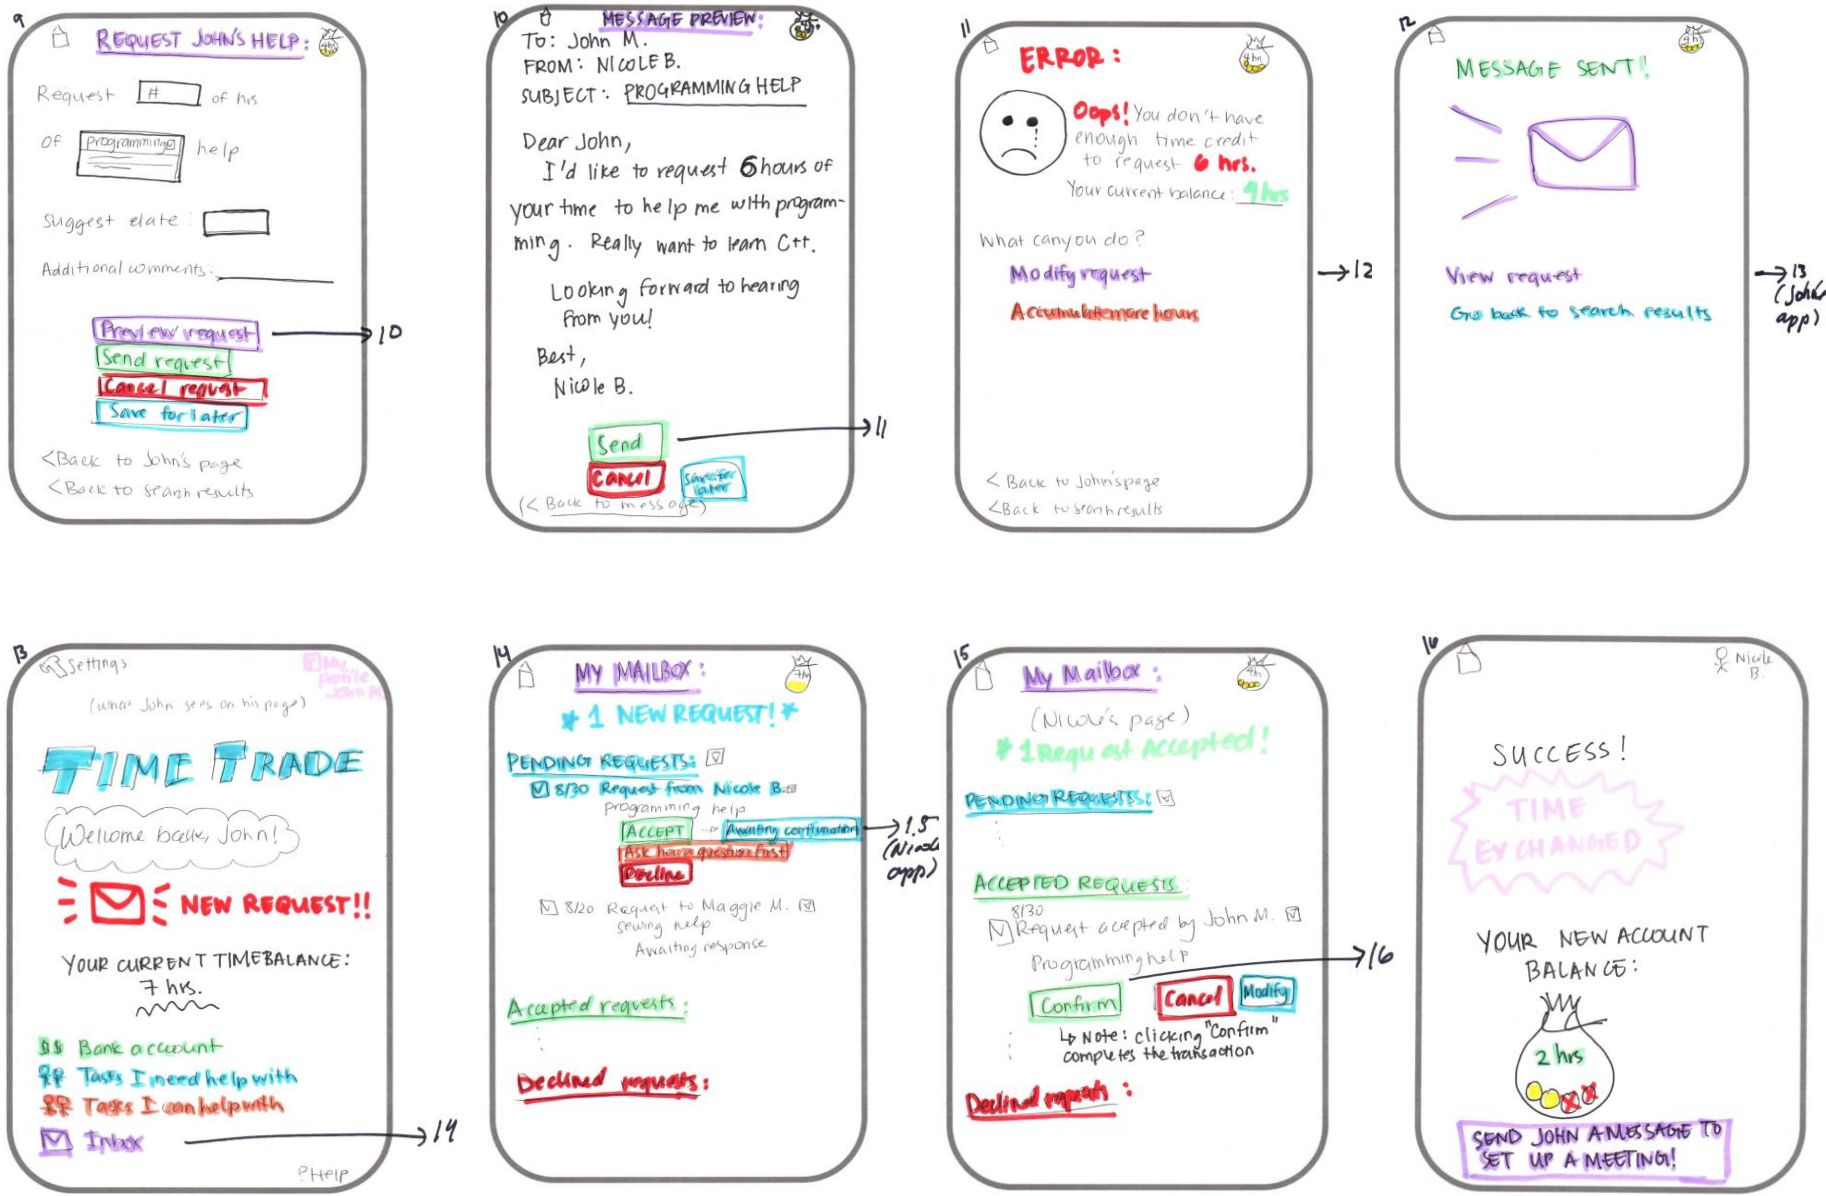 9
REQUEST JOHN'S HELP:
4hr
Request # of his
of Programming help
Suggest date:
Additional comments:
Preview request → 10
Send request
Cancel request
Save for later
<Back to John's page
<Back to search results
10
MESSAGE PREVIEW:
TO: John M.
FROM: NICOLE B.
SUBJECT: PROGRAMMING HELP
Dear John,
I'd like to request 6 hours of
your time to help me with program-
ming. Really want to learn C++.
Looking forward to hearing
from you!
Best,
Nicole B.
Send → 11
Cancel
Save for
later
(< Back to message)
11
ERROR:
4hr
Oops! You don't have
enough time credit
to request 6 hrs.
Your current balance: 4hrs
What can you do?
Modify request → 12
Accumulate more hours
< Back to John's page
<Back to search results
12
4h
MESSAGE SENT!!
View request → 13
(John's
app)
Go back to search results
13
Settings
My
profile
John M.
(what John sees on his page)
TIME TRADE
Welcome back, John!
NEW REQUEST!!
YOUR CURRENT TIME BALANCE:
7 hrs.
$$ Bank account
Tasks I need help with
Tasks I can help with
Inbox → 14
? Help
14
MY MAILBOX:
7h
* 1 NEW REQUEST! *
PENDING REQUESTS:
8/30 Request from Nicole B.
programming help
ACCEPT → Awaiting confirmation → 15
(Nicole
app)
Ask her a question first
Decline
8/20 Request to Maggie M.
sewing help
Awaiting response
Accepted requests:
Declined requests:
15
My Mailbox:
4h
(Nicole's page)
* 1 Request Accepted!
PENDING REQUESTS:
ACCEPTED REQUESTS:
8/30
Request accepted by John M.
Programming help → 16
Confirm Cancel Modify
↳ Note: clicking "Confirm"
completes the transaction
Declined requests:
16
Nicole
B.
SUCCESS!
TIME
EXCHANGED
YOUR NEW ACCOUNT
BALANCE:
2 hrs
SEND JOHN A MESSAGE TO
SET UP A MEETING!